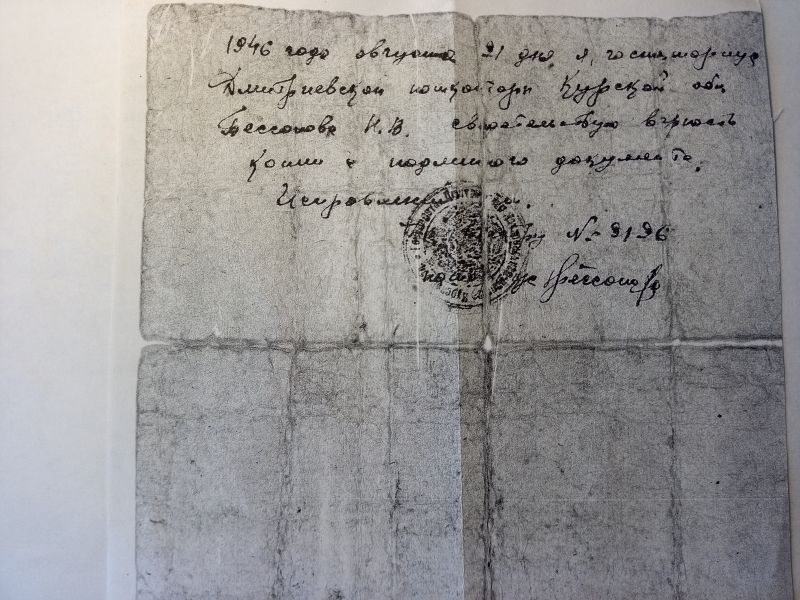 1946 года августа 21 дня я, госнотариус
Дмитриевской нотконторы Курской обл
Бессонова Н.В. свидетельствую верность
копии с подлинного документа.
Исправлений
№ 3136
Бессонова